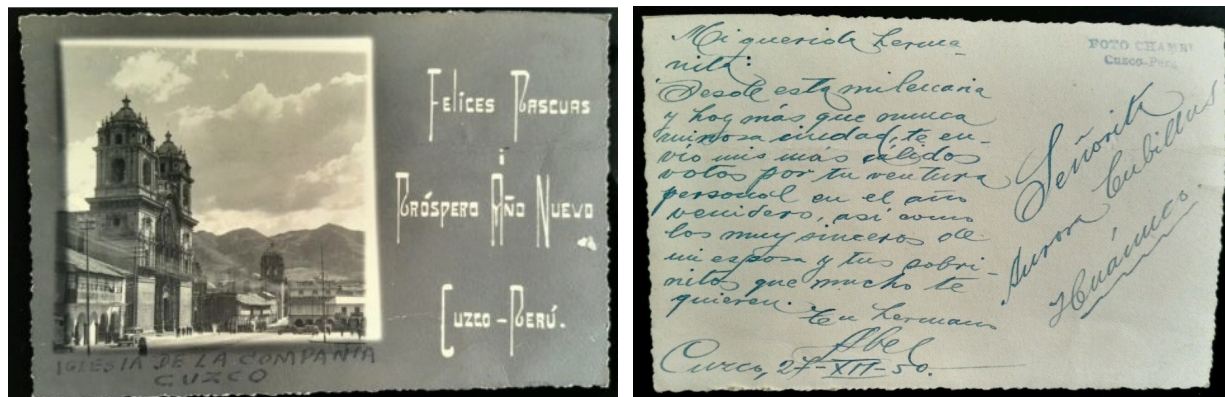 Felices Pascuas
i
Próspero Año Nuevo
Cuzco-Perú.
IGLESIA DE LA COMPAÑIA
CUZCO
Mi querida herma
nita:
Desde esta milenaria
y hoy más que nunca
ruinosa ciudad, te en-
vío mis más cálidos
votos por tu ventura
personal en el año
venidero, así como
los muy sinceros de
mi esposa y tus sobri-
nitos que mucho te
quieren.
Tu hermano
Abel
Cuzco, 27-XII-50.
FOTO CHAMBI
Cuzco-Perú
Señorita
Aurora Cubillas
Huánuco